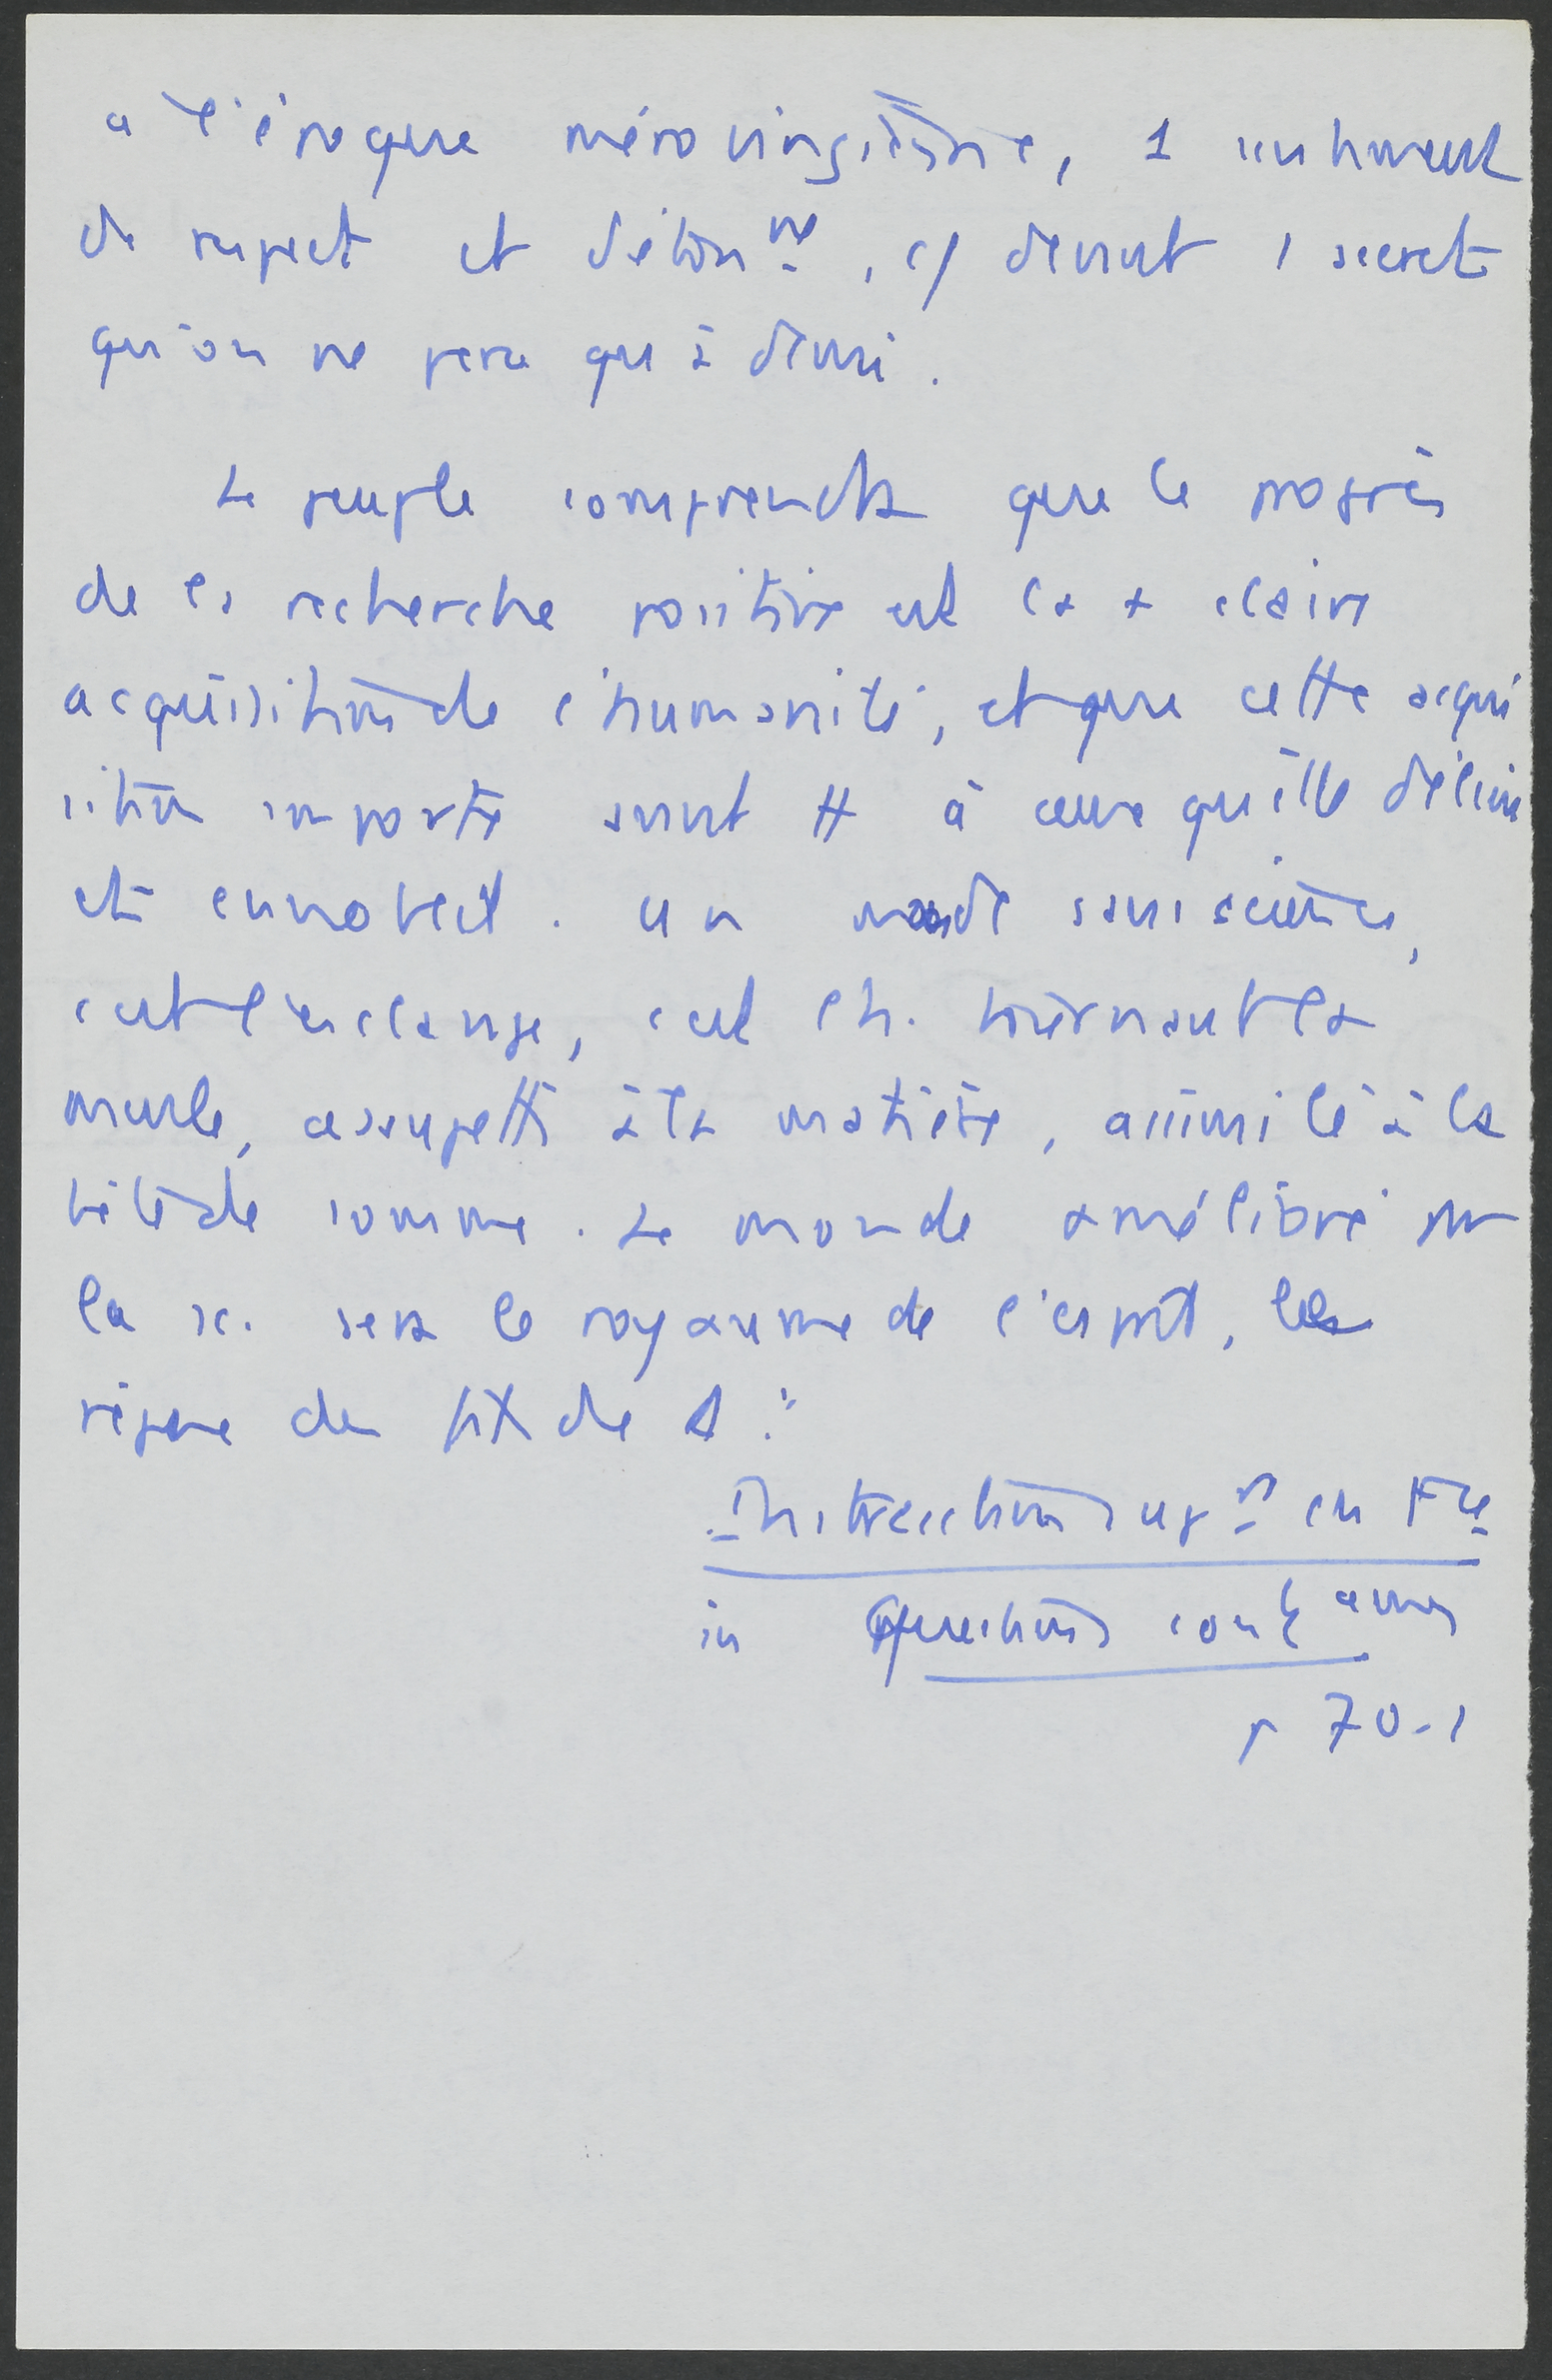 à l'époque mérovingienne, 1 sentiment
de respect et d'étonnt, c/ devant 1 secret
qu'on ne pera qu'à demi.
Le peuple comprendra que le progrès
de la recherche positive est la + claire
acquisition de l'humanité, et que cette acqui
sition importe avant tt à ceux qu'elle délivre
et ennoblit. Un monde sans science,
c'est l'esclavage, c'est l'h. tournant la
meule, assujetti à la matière, assimilé à la
bête de somme. Le monde amélioré par
la sc. sera le royaume de l'esprit, le
règne des fils de D."
Instruction supre en Fce
in Questions containes
p 70-1